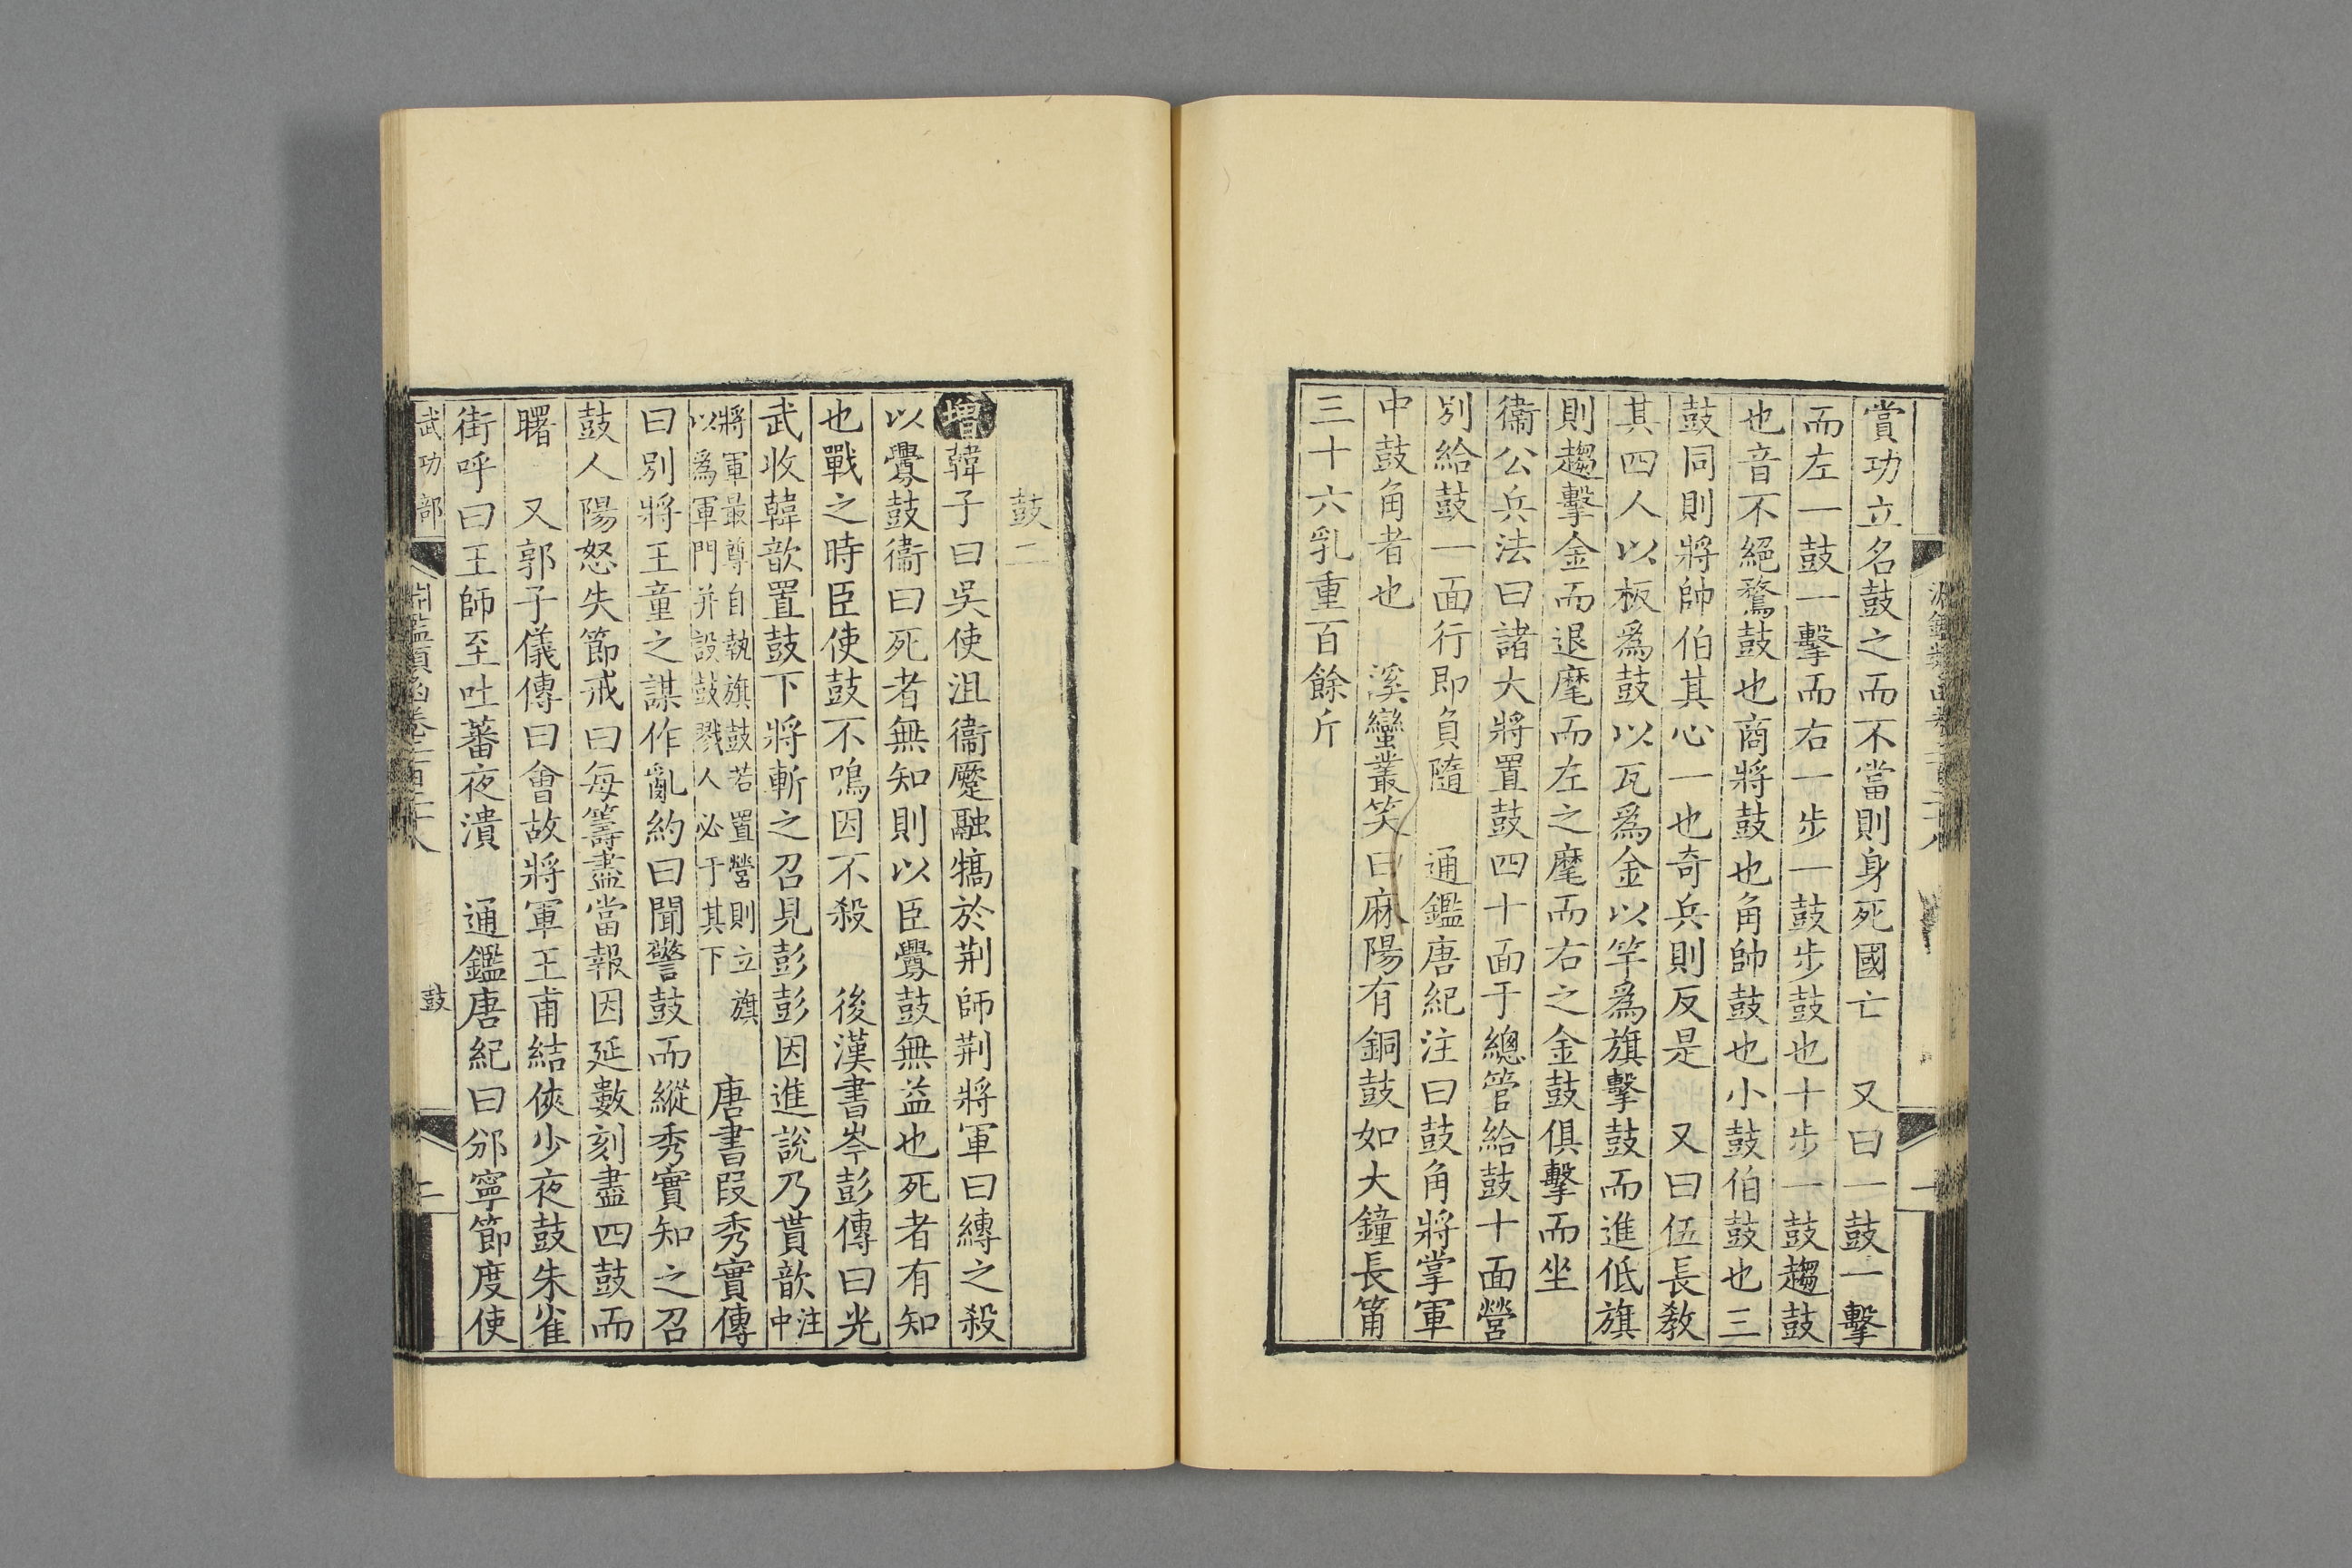 賞功立名鼓之而不當則身死國亡　又曰一鼓一擊
而左一鼓一擊而右一步一鼓步鼓也十步一鼓趨鼓
也音不絕鶩鼓也商將鼓也角帥鼓也小鼓伯鼓也三
鼓同則將帥伯其心一也奇兵則反是　又曰伍長教
其四人以板爲鼓以瓦爲金以竿爲旗擊鼓而進低旗
則趨擊金而退麾而左之麾而右之金鼓俱擊而坐
衞公兵法曰諸大將置鼓四十面于總管給鼓十面營
別給鼓一面行即負隨　通鑑唐紀注曰鼓角將掌軍
中鼓角者也　溪蠻叢笑曰麻陽有銅鼓如大鐘長筩
三十六乳重百餘斤
鼓二
增韓子曰吳使沮衞蹷融犒於荆師荆將軍曰縳之殺
以釁鼓衞曰死者無知則以臣釁鼓無益也死者有知
也戰之時臣使鼓不鳴因不殺　後漢書岑彭傳曰光
武收韓歆置鼓下將斬之召見彭彭因進說乃貰歆注中
將軍最尊自執旗鼓若置營則立旗
以爲軍門并設鼓戮人必于其下　唐書段秀實傳
曰別將王童之謀作亂約曰聞警鼓而縱秀實知之召
鼓人陽怒失節戒曰每籌盡當報因延數刻盡四鼓而
曙　又郭子儀傳曰會故將軍王甫結俠少夜鼓朱雀
街呼曰王師至吐蕃夜潰　通鑑唐紀曰邠寧節度使
武功部　淵鑑類函卷二百二十八　鼓　二